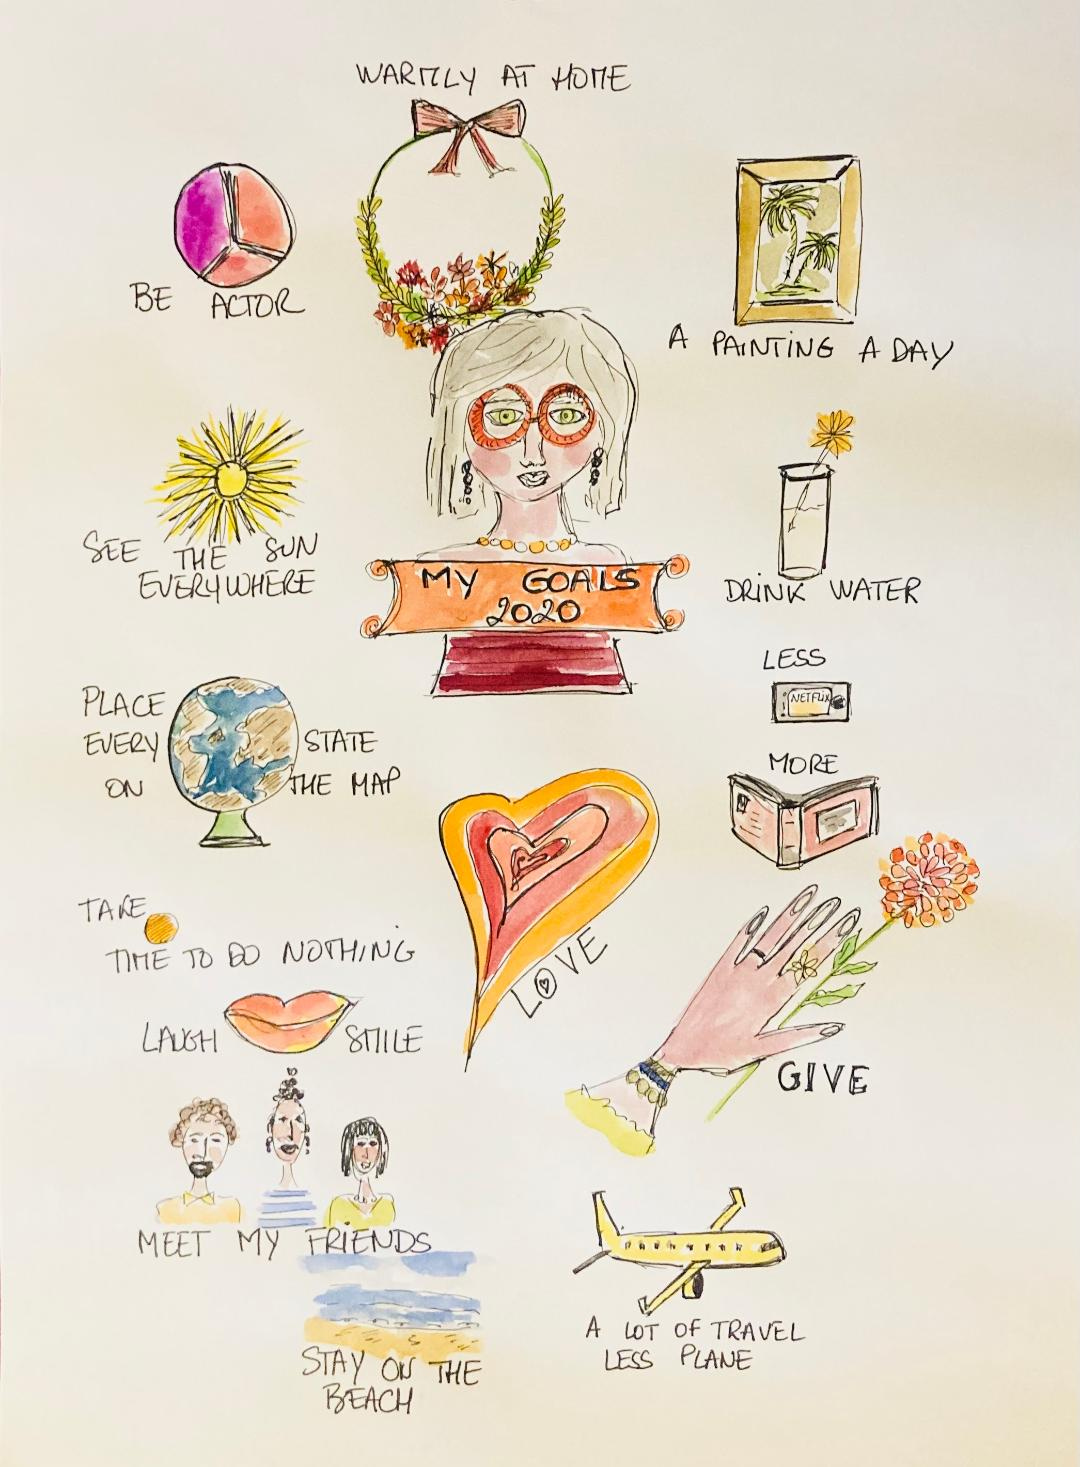 WARMLY AT HOME
BE ACTOR
A PAINTING A DAY
SEE THE SUN
EVERYWHERE
MY GOALS
2020
DRINK WATER
LESS
NETFLIX
MORE
PLACE
EVERY STATE
ON THE MAP
TAKE
TIME TO DO NOTHING
LOVE
LAUGH SMILE
GIVE
MEET MY FRIENDS
STAY ON THE
BEACH
A LOT OF TRAVEL
LESS PLANE